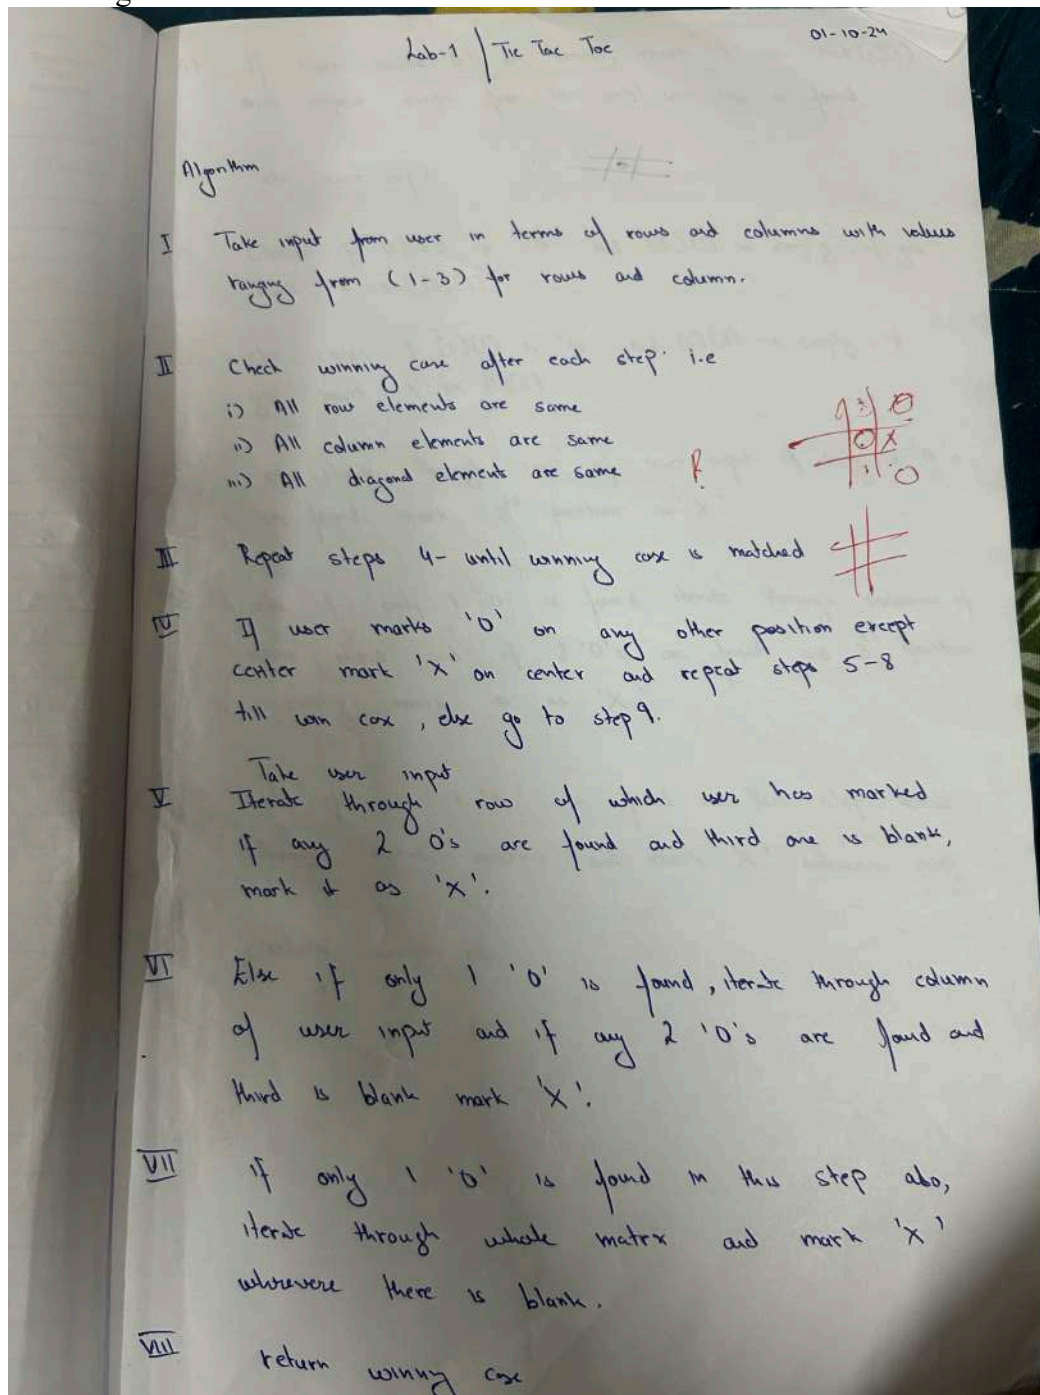 Lab-1 | Tic Tac Toe
01-10-24
Algorithm
I Take input from user in terms of rows and columns with values
ranging from (1-3) for rows and column.
II Check winning case after each step. i.e
i) All row elements are same
ii) All column elements are same
iii) All diagonal elements are same
III Repeat steps 4- until winning case is matched
IV If user marks 'O' on any other position except
center mark 'X' on center and repeat steps 5-8
till win case, else go to step 9.
Take user input
V Iterate through row of which user has marked
if any 2 O's are found and third one is blank,
mark it as 'X'.
VI Else if only 1 'O' is found, iterate through column
of user input and if any 2 'O's are found and
third is blank mark 'X'.
VII if only 1 'O' is found in this step also,
iterate through whole matrx and mark 'X'
whrevere there is blank.
VIII return winning case